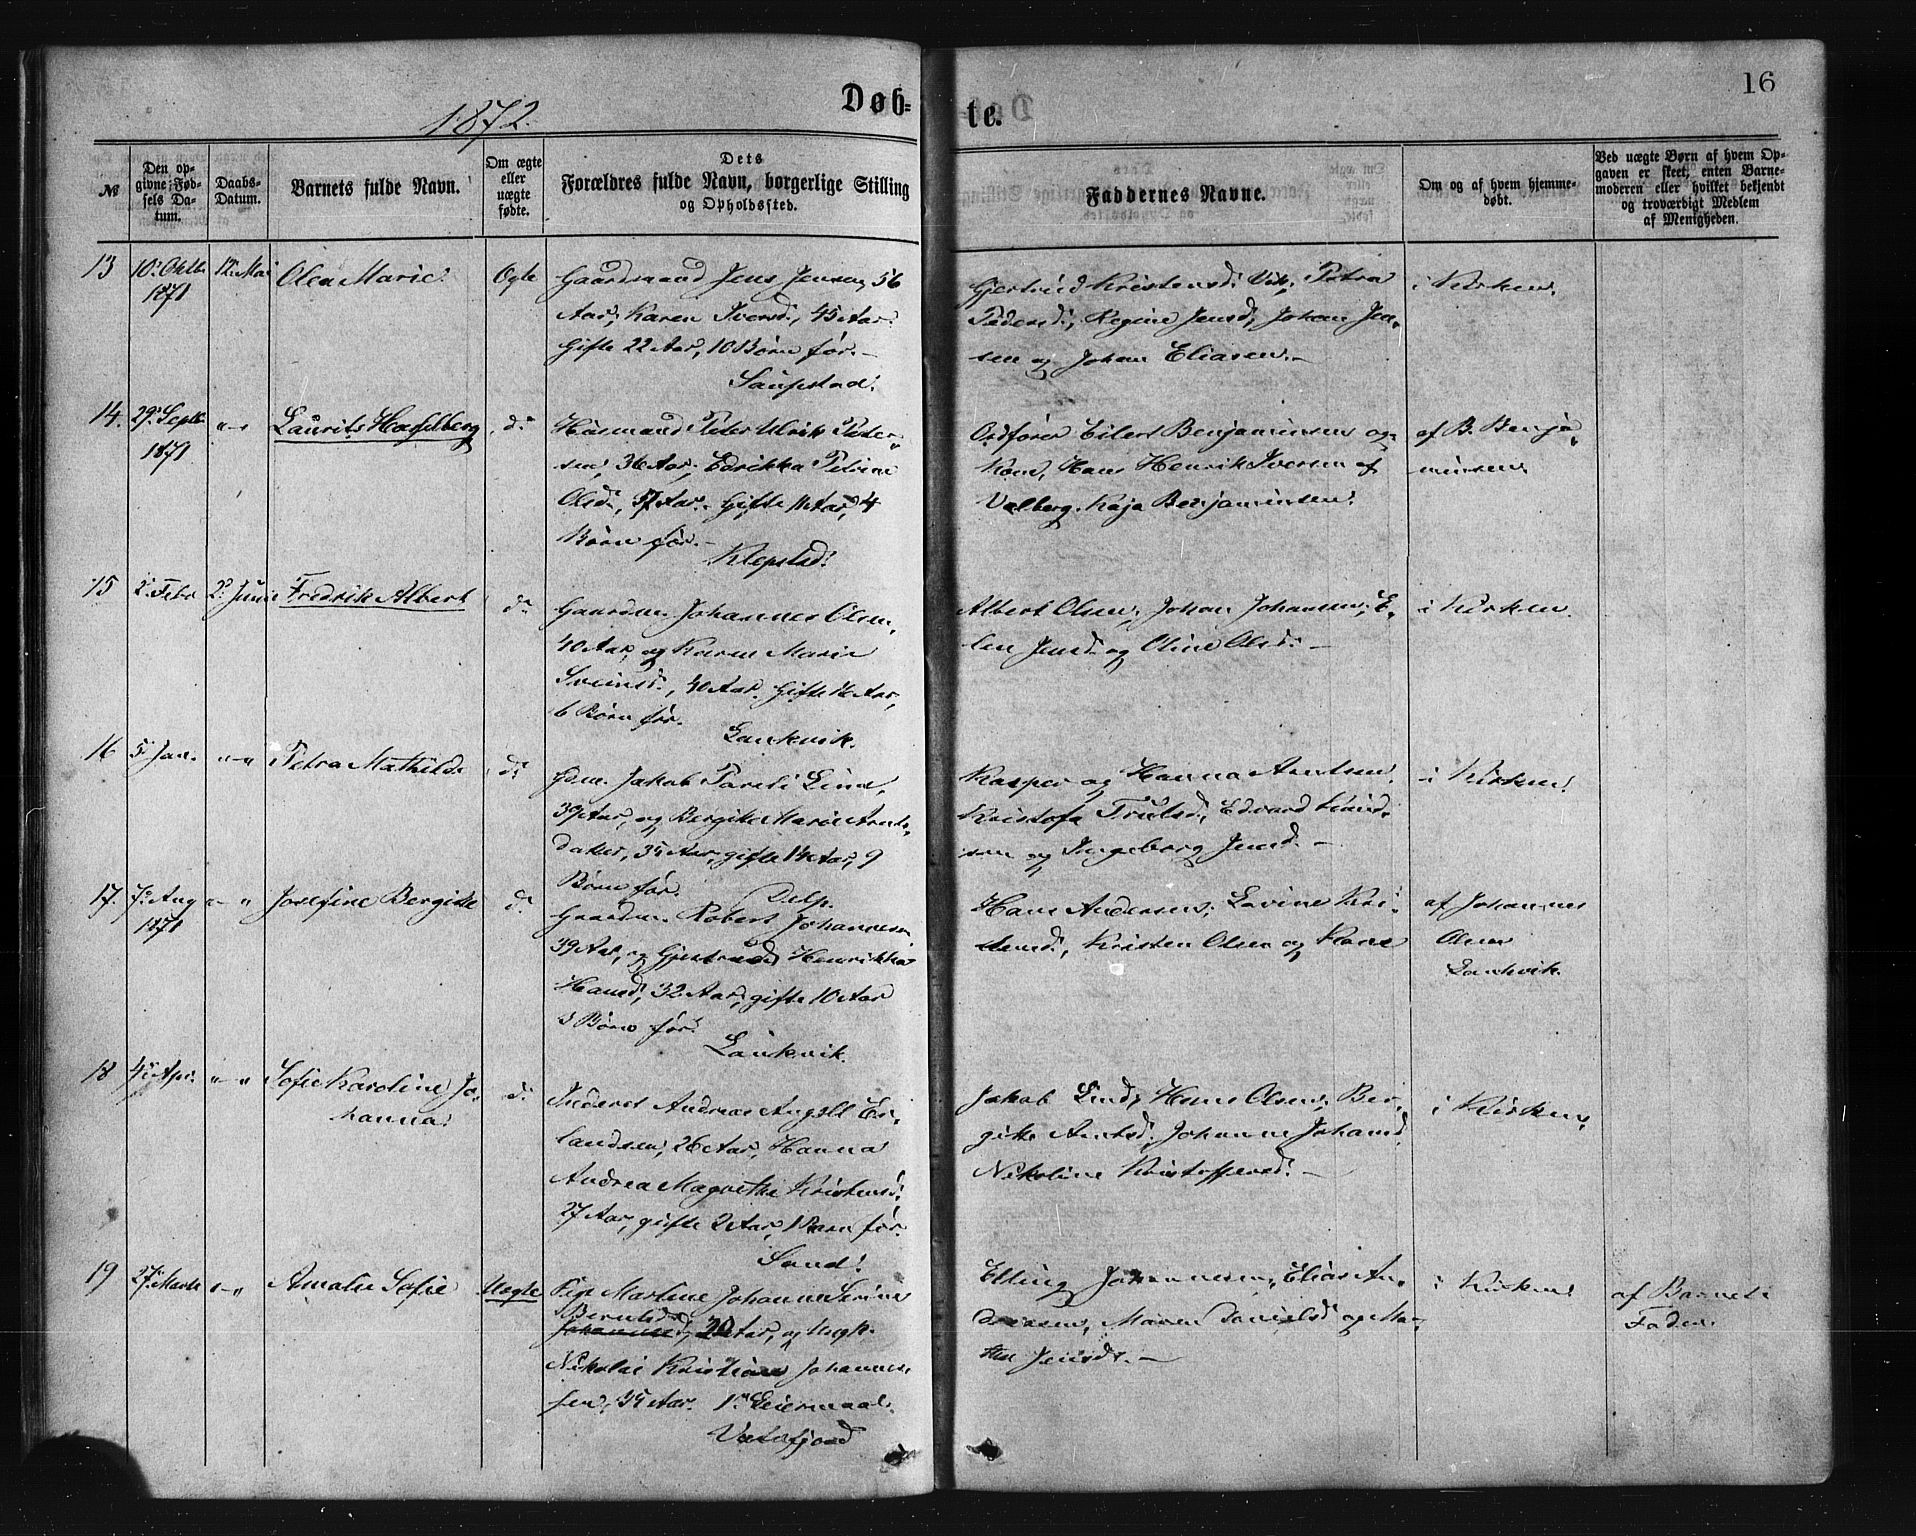 16
1872.
Døb=
te.
№
Den op-
givne Fød-
sels Da-
tum.
Daabs-
Datum.
Barnets fulde Navn.
Om ægte
eller
uægte
fødte.
Dets
Forældres fulde Navn, borgerlige Stilling
og Opholdssted.
Faddernes Navne.
Om og af hvem hjemme-
døbt.
Ved uægte Børn af hvem Op-
gaven er skeet, enten Barne-
moderen eller hvilket bekjendt
og troværdigt Medlem
af Menigheden.
13
10de Oktbr
1871
12te Mai
Olea Marie
Ægte
Gaardmand Jens Jensen, 56
Aar, Karen Iversd., 45 Aar.
Gifte 22 Aar, 10 Børn før.-
Saupstad.
Gjertrud Kristensd. Vik, Petra
Pedersd., Regine Jensd., Johan Jen-
sen og Johan Eliasen.-
i Kirken.
14.
29de Septbr
1871
"-"
Laurits Hasselberg
do
Husmand Peter Ulrik Peder-
sen, 36 Aar, Edrikka Petrine
Olsd., 37 Aar. Gifte 11 Aar, 4
Børn før.-
Klepstad.
Ordfører Eilert Benjaminsen og
Kone, Hans Henrik Iversen af
Valberg. Kaja Benjaminsen.
af B. Benja-
minsen
15
2de Febr
2den Juni
Fredrik Albert
do
Gaardm. Johannes Olsen,
40 Aar, og Karen Marie
Sveinsd., 40 Aar. Gifte 16 Aar,
6 Børn før.
Laukvik.
Albert Olsen, Johan Johansen, E-
len Jensd. og Oline Olsd.-
i Kirken.
16
5te Jan.
"-"
Petra Mathilde
do
Gdm. Jakob Pareli Lind,
39 Aar, og Bergitte Marie Arnts-
datter, 35 Aar, gifte 14 Aar, 9
Børn før.
Delp.
Kasper og Hanna Arntsen,
Kristofa Trulsd., Edvard Lind-
sen og Ingeborg Jensd.-
i Kirken.
17.
7de Aug
1871
"-"
Josefine Bergitte
do
Gaardm. Robert Johannesen
39 Aar, og Gjertrud Henrikka
Hansd., 32 Aar, gifte 10 Aar
3 Børn før.
Laukvik.
Hans Andersen, Lovine Kri-
stensd., Kristen Olsen og Kone
af Johannes
Olsen
Laukvik.
18
4de Apr.
"-"
Sofie Karoline Jo-
hanna
do
Inderst Andreas Angell Er-
landsen, 26 Aar, Hanna
Andrea Magrethe Kristensd.
27 Aar, gifte 2 Aar, 1 Barn før.
Sand.
Jakob Lind, Hans Olsen, Ber-
gitte Arntsd., Johanne Johansd.
Nikoline Kristoffersd.-
i Kirken.
19
27de Marts
"-"
Amalie Sofie
Uægte
Pige Martine Johanne Serine
Berntsd.
Johannesd., 20 Aar, og Ungk.
Nikolai Kristian Johannes-
sen, 35 Aar. 1ste Leiermaal.
Vaterfjord
Elling Johannesen, Elias An-
dersen, Maren Danielsd. og Ma-
rthe Jensdr.-
i Kirken
af Barnets
Fader.